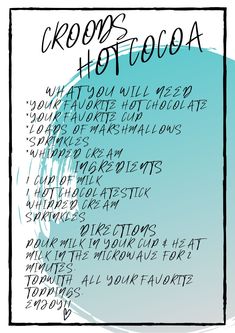 CROODS
HOT COCOA
WHAT YOU WILL NEED
*YOUR FAVORITE HOT CHOCOLATE
*YOUR FAVORITE CUP
*LOADS OF MARSHMALLOWS
*SPRINKLES
*WHIPPED CREAM
INGREDIENTS
1 CUP OF MILK
1 HOT CHOCOLATE STICK
WHIPPED CREAM
SPRINKLES
DIRECTIONS
POUR MILK IN YOUR CUP & HEAT
MILK IN THE MICROWAVE FOR 2
MINUTES.
TOP WITH ALL YOUR FAVORITE
TOPPINGS
ENJOY!!